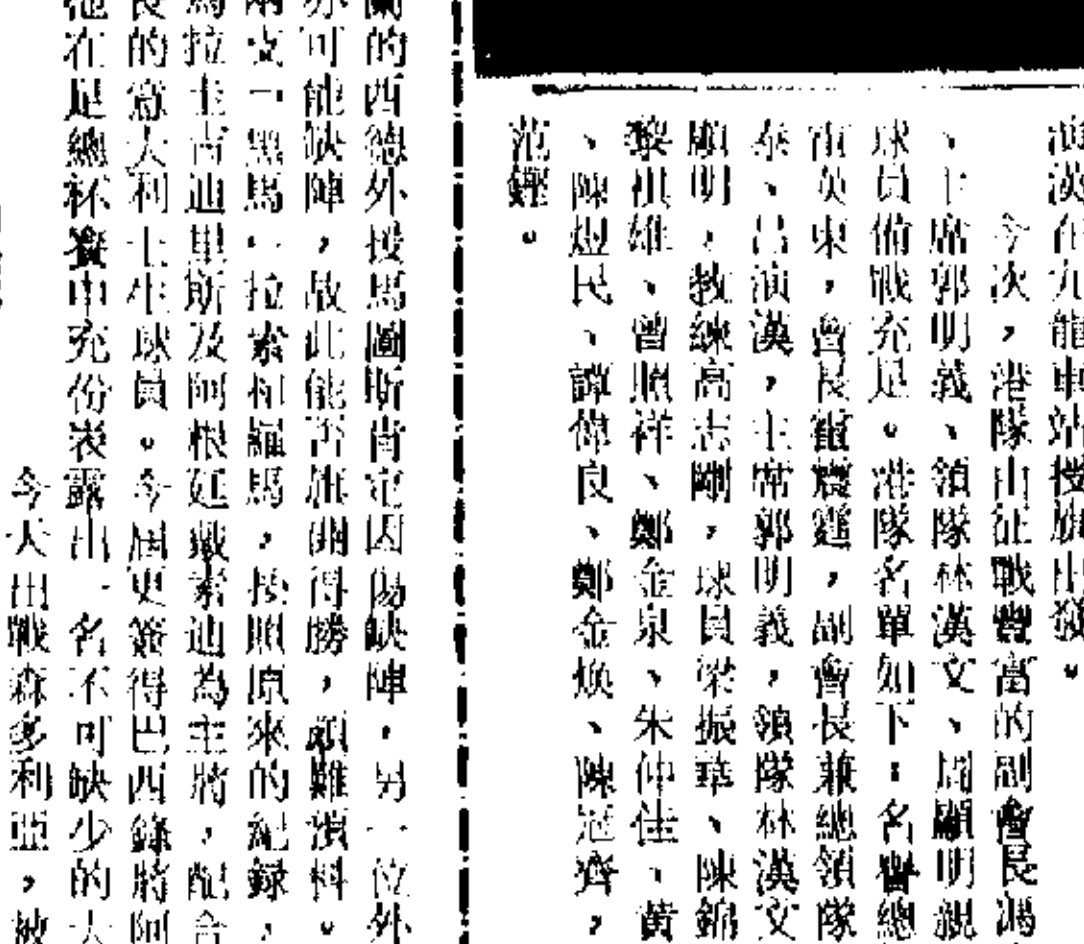 演漢在九龍車站授旗出發。
今次，港隊出征戰豐富的副會長馮
、主席郭明義、領隊林漢文、周顯明親
球員備戰充足。港隊名單如下：名譽總
英東，會長霍震霆，副會長兼總領隊
泰、呂演漢，主席郭明義，領隊林漢文
顯明，教練高志剛，球員梁振華、陳錦
黎祖雄、曾照祥、鄭金泉、朱仲佳、黃
、陳煜民、譚偉良、鄭金煥、陳冠齊，
范鏗。
蘭的西德外援馬圖斯肯定因傷缺陣，另一位外
亦可能缺陣，故此能否旗開得勝，頗難預料。
兩支一黑馬，拉素和羅馬，按照原來的紀錄，
馬拉圭古迪里斯及阿根廷戴素迪為主將，配合
長的意大利土生球員。今屆更簽得巴西錄將阿
他在足總杯賽中充份表露出一名不可缺少的大
今天出戰森多利亞，被